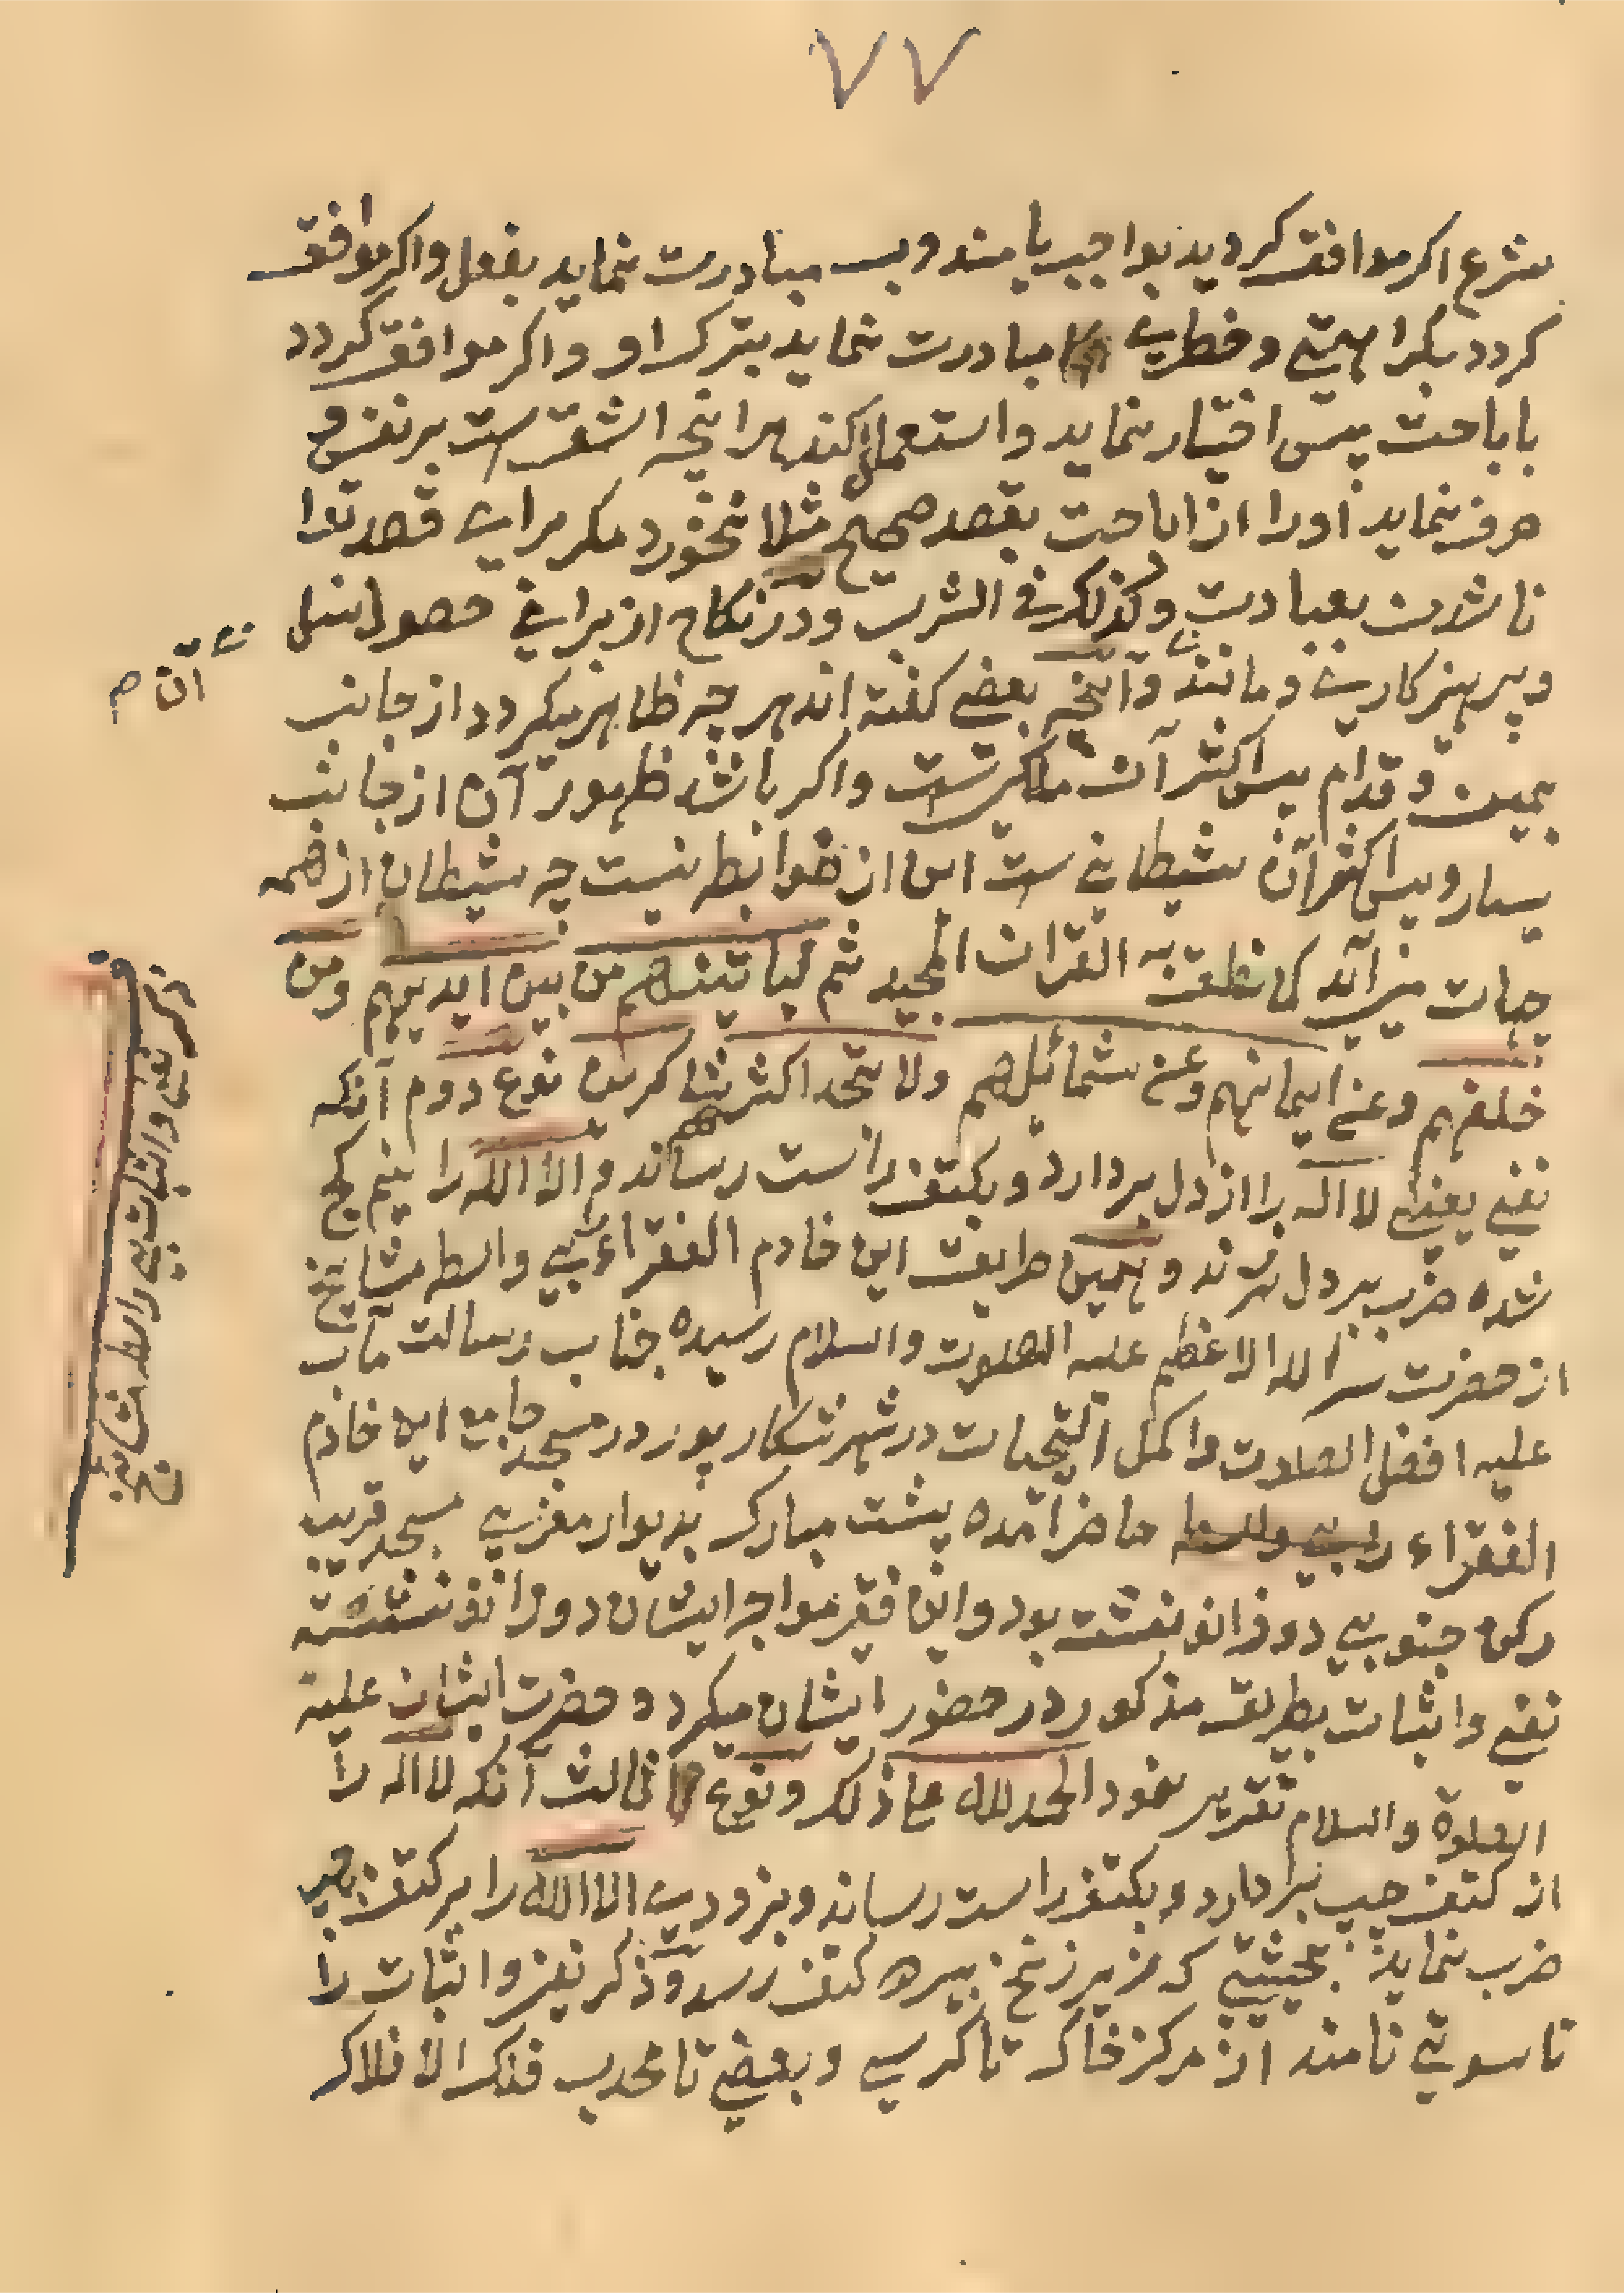 ٧٧
شرع اکر موافق کردید بواجب یا مندوب مبادرت نماید بفعل واکر موافق
کردد بکراهیتی وخطری مبادرت نماید بترک او واکر موافق کردد
باباحت پس اختیار نماید واستعمال کند هرانچه اشق است بر نفس و
صرف نماید اورا از اباحت بقصد صحیح مثلا نخورد مکر برای قصد توا
ناشدن بعبادت وکذلک فی الشرب ودر نکاح از برای حصول نسل
وپرهیزکاری ومانند وآنچه بعضی کفته اند هر چه ظاهر میکردد از جانب
آن صح
یمین وقدام پس اکثر آن ملکی ست واکر باشد ظهور آن از جانب
یسار وپس اکثر آن شیطانی ست این از ضوابط نیست چه شیطان از همه
جهات می آید کما نطق به القران المجید ثم لیاتینهم من بین ایدیهم ومن
خلفهم وعن ایمانهم وعن شمائلهم ولا تجد اکثرهم شاکرین نوع دوم آنکه
نفی یعنی لا اله را از دل بردارد وبکتف راست رساند والا الله را نیم کج
شده ضرب بر دل زند وهمین طریقت این خادم الفقراء بی واسطه مشایخ
از حضرت سر الله الاعظم علیه الصلوت والسلام رسیده جناب رسالت مآب
علیه افضل الصلوت واکمل التحیات در شهر شکارپور در مسجد جامع این خادم
الفقراء حاضر آمده پشت مبارک بدیوار مغربی مسجد قریب
رکن جنوبی دو زانو نشست بود واین فقیر مواجه ایشان دو زانو نشسته
نفی واثبات بطریق مذکور در حضور ایشان میکرد وحضرت ایشان علیه
الصلوة والسلام تقریر نمود الحمد لله علی ذلک ونوع ثالث آنکه لا اله را
از کتف چپ بردارد وبکتف راست رساند وبزودی الا الله را بر کتف چپ
ضرب نماید بحیثیتی که زیر زنخ بسره کتف رسد وذکر نفی واثبات را
ناسوتی نامند از مرکز خاک تا کرسی وبعضی تا محدب فلک الافلاک
ذکر نفی واثبات بی واسطه مشایخ